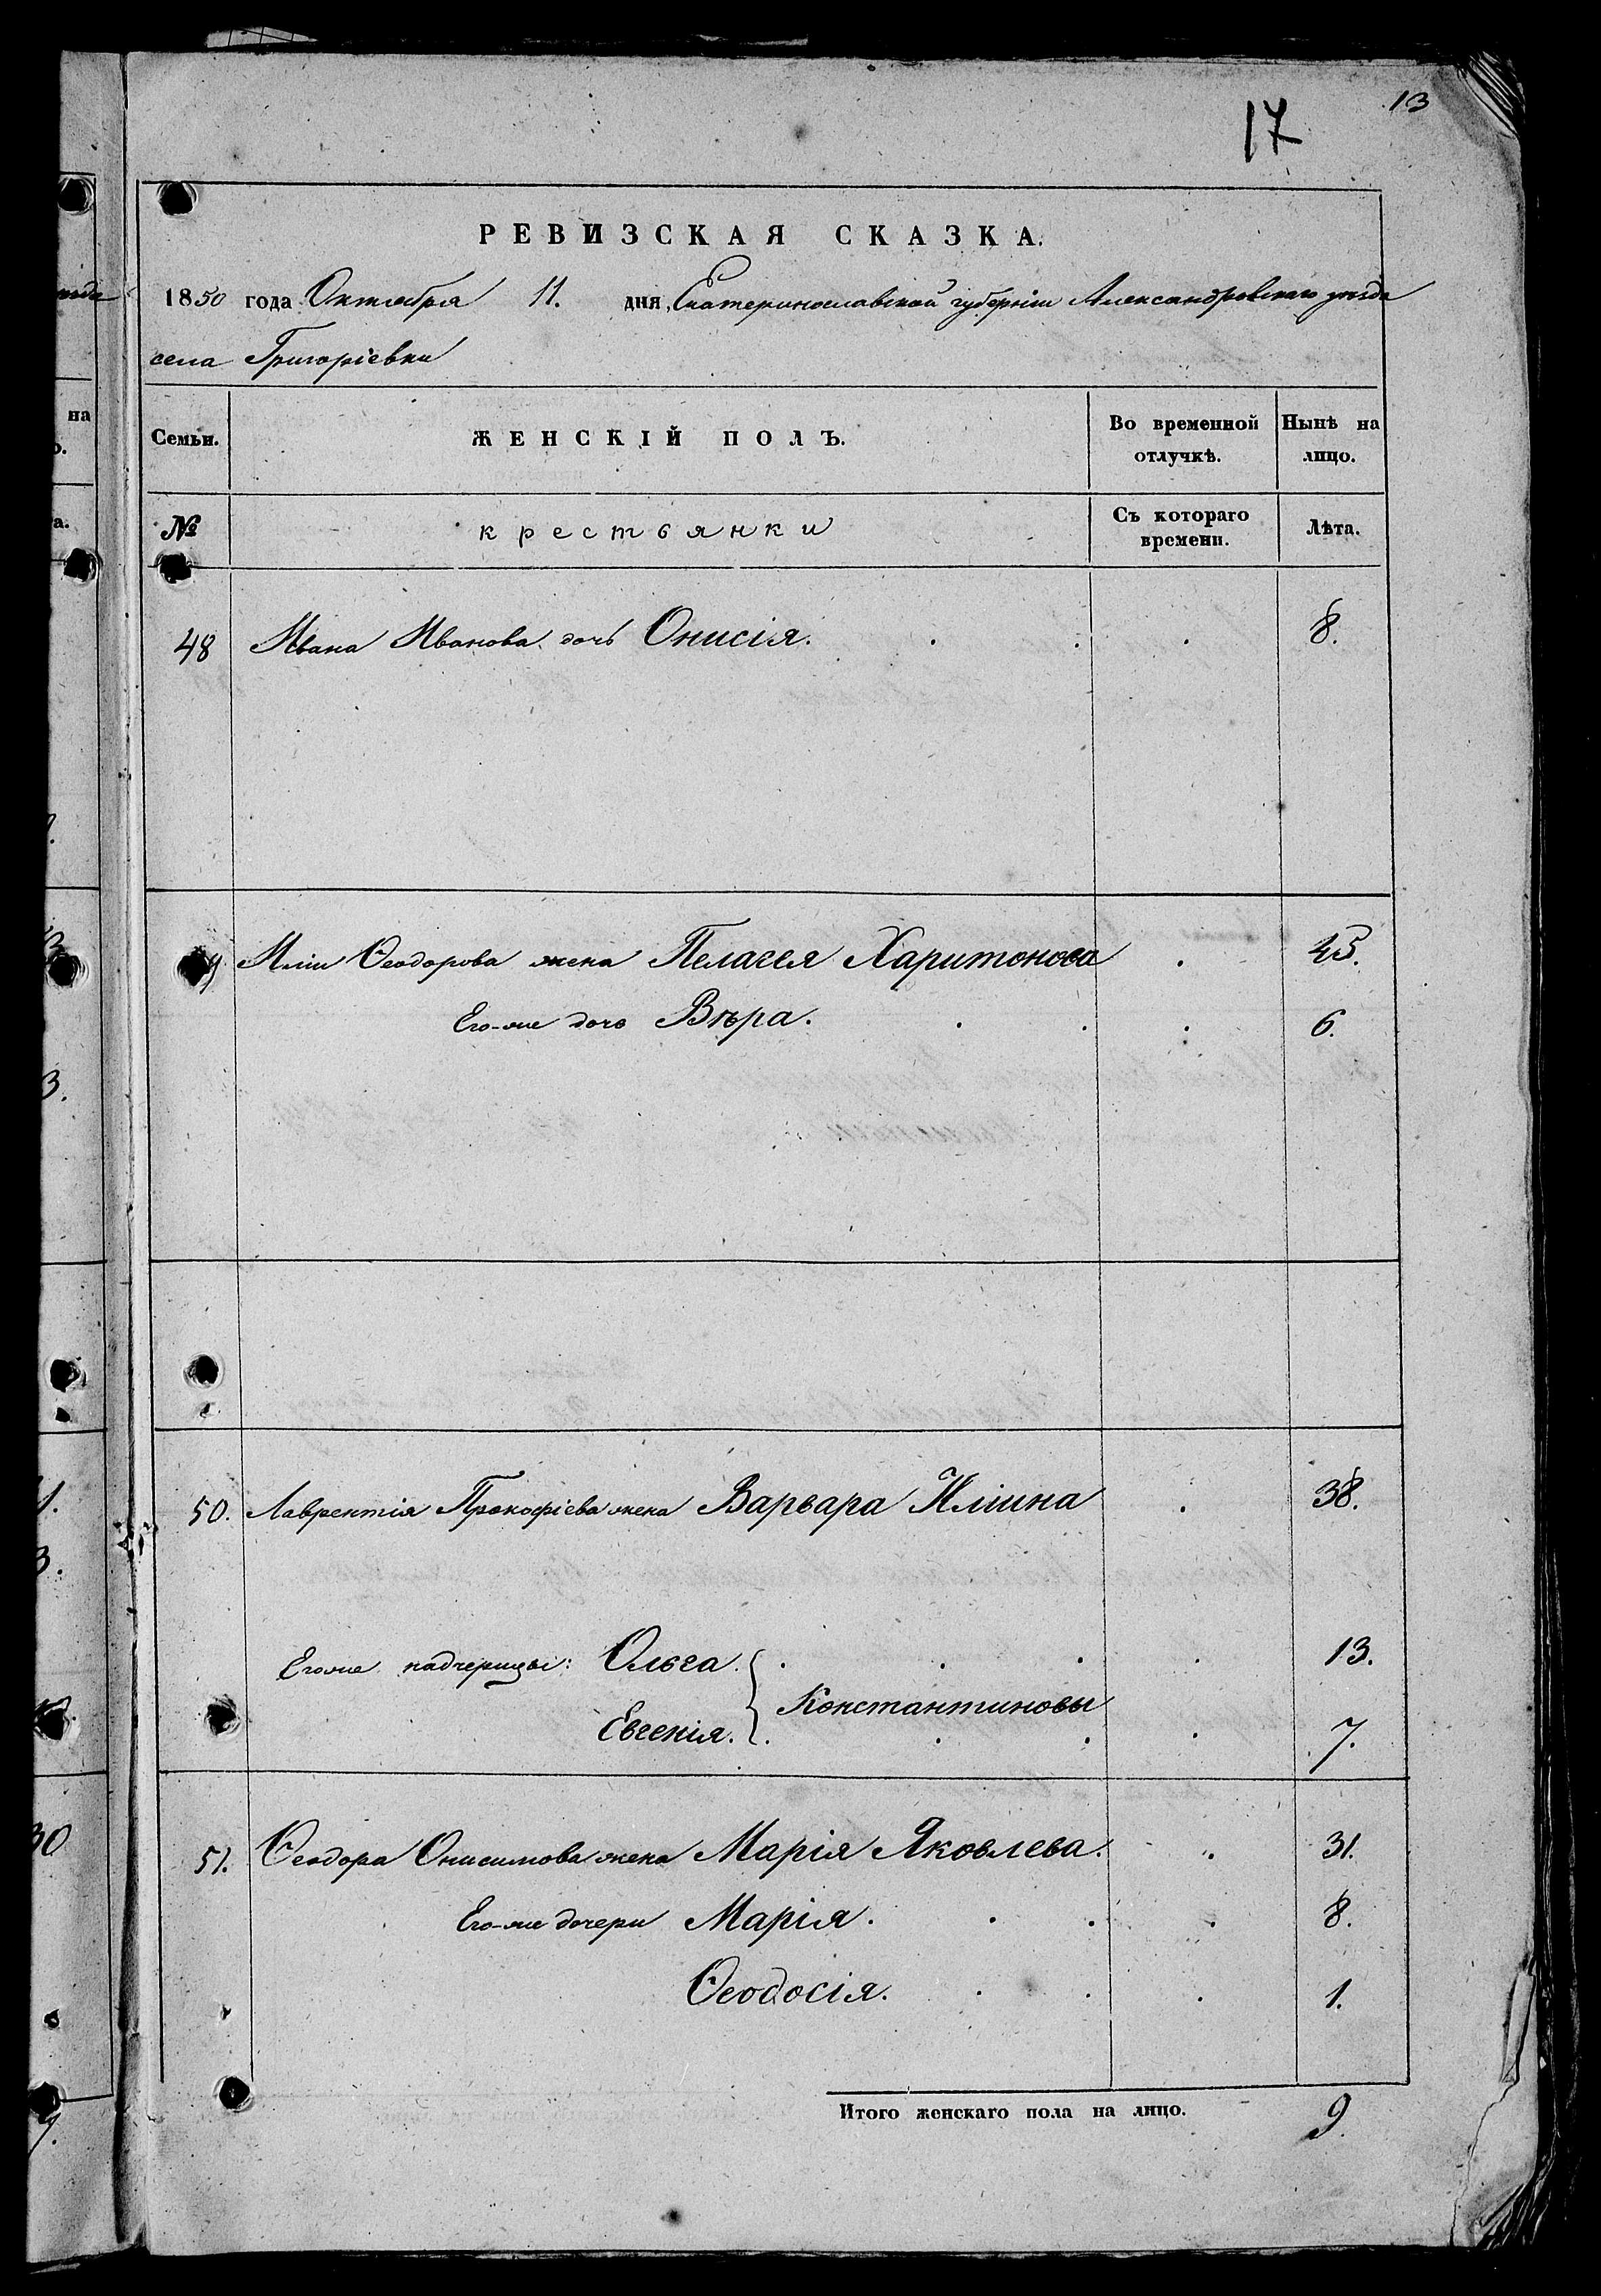 13
17
РЕВИЗСКАЯ СКАЗКА.
1850 года Октября 11. дня, Екатеринославской губерніи Александровскаго уѣзда
села Григоріевки
Семьи. ЖЕНСКІЙ ПОЛЪ. Во временной отлучкѣ. Нынѣ на лицо.
№ крестьянки Съ котораго времени. Лѣта.
48 Ивана Иванова дочь Онисія. 8.
Иліи Ѳеодорова жена Пелагея Харитонова 45.
Его-же дочь Вѣра. 6.
50. Лаврентія Прокофіева жена Варвара Иліина 38.
Его же падчерицы: Ольга. 13.
Константиновы
Евгенія. 7.
51. Ѳеодора Онисимова жена Марія Яковлева. 31.
Его-же дочери Марія. 8.
Ѳеодосія. 1.
Итого женскаго пола на лицо. 9.
на
а.
3.
1.
3.
30